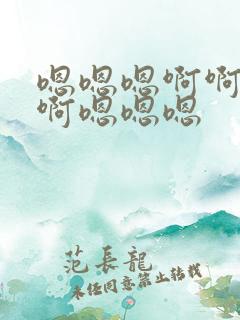 嗯嗯嗯啊啊
啊嗯嗯嗯
范長龍
未经同意禁止转载